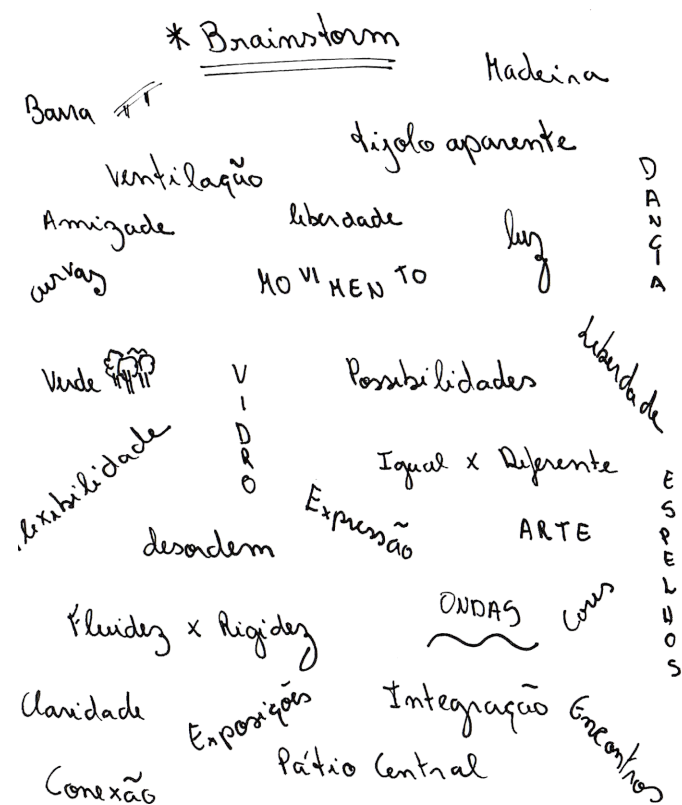 * Brainstorm
Madeira
Barra
tijolo aparente
Ventilação
DANÇA
Amizade
liberdade
luz
curvas
MOVIMENTO
Liberdade
Verde
VIDRO
Possibilidades
flexibilidade
Igual x Diferente
ESPELHOS
Expressão
ARTE
desordem
ONDAS
Cores
Fluidez x Rigidez
Claridade
Exposições
Integração
Encontros
Pátio Central
Conexão